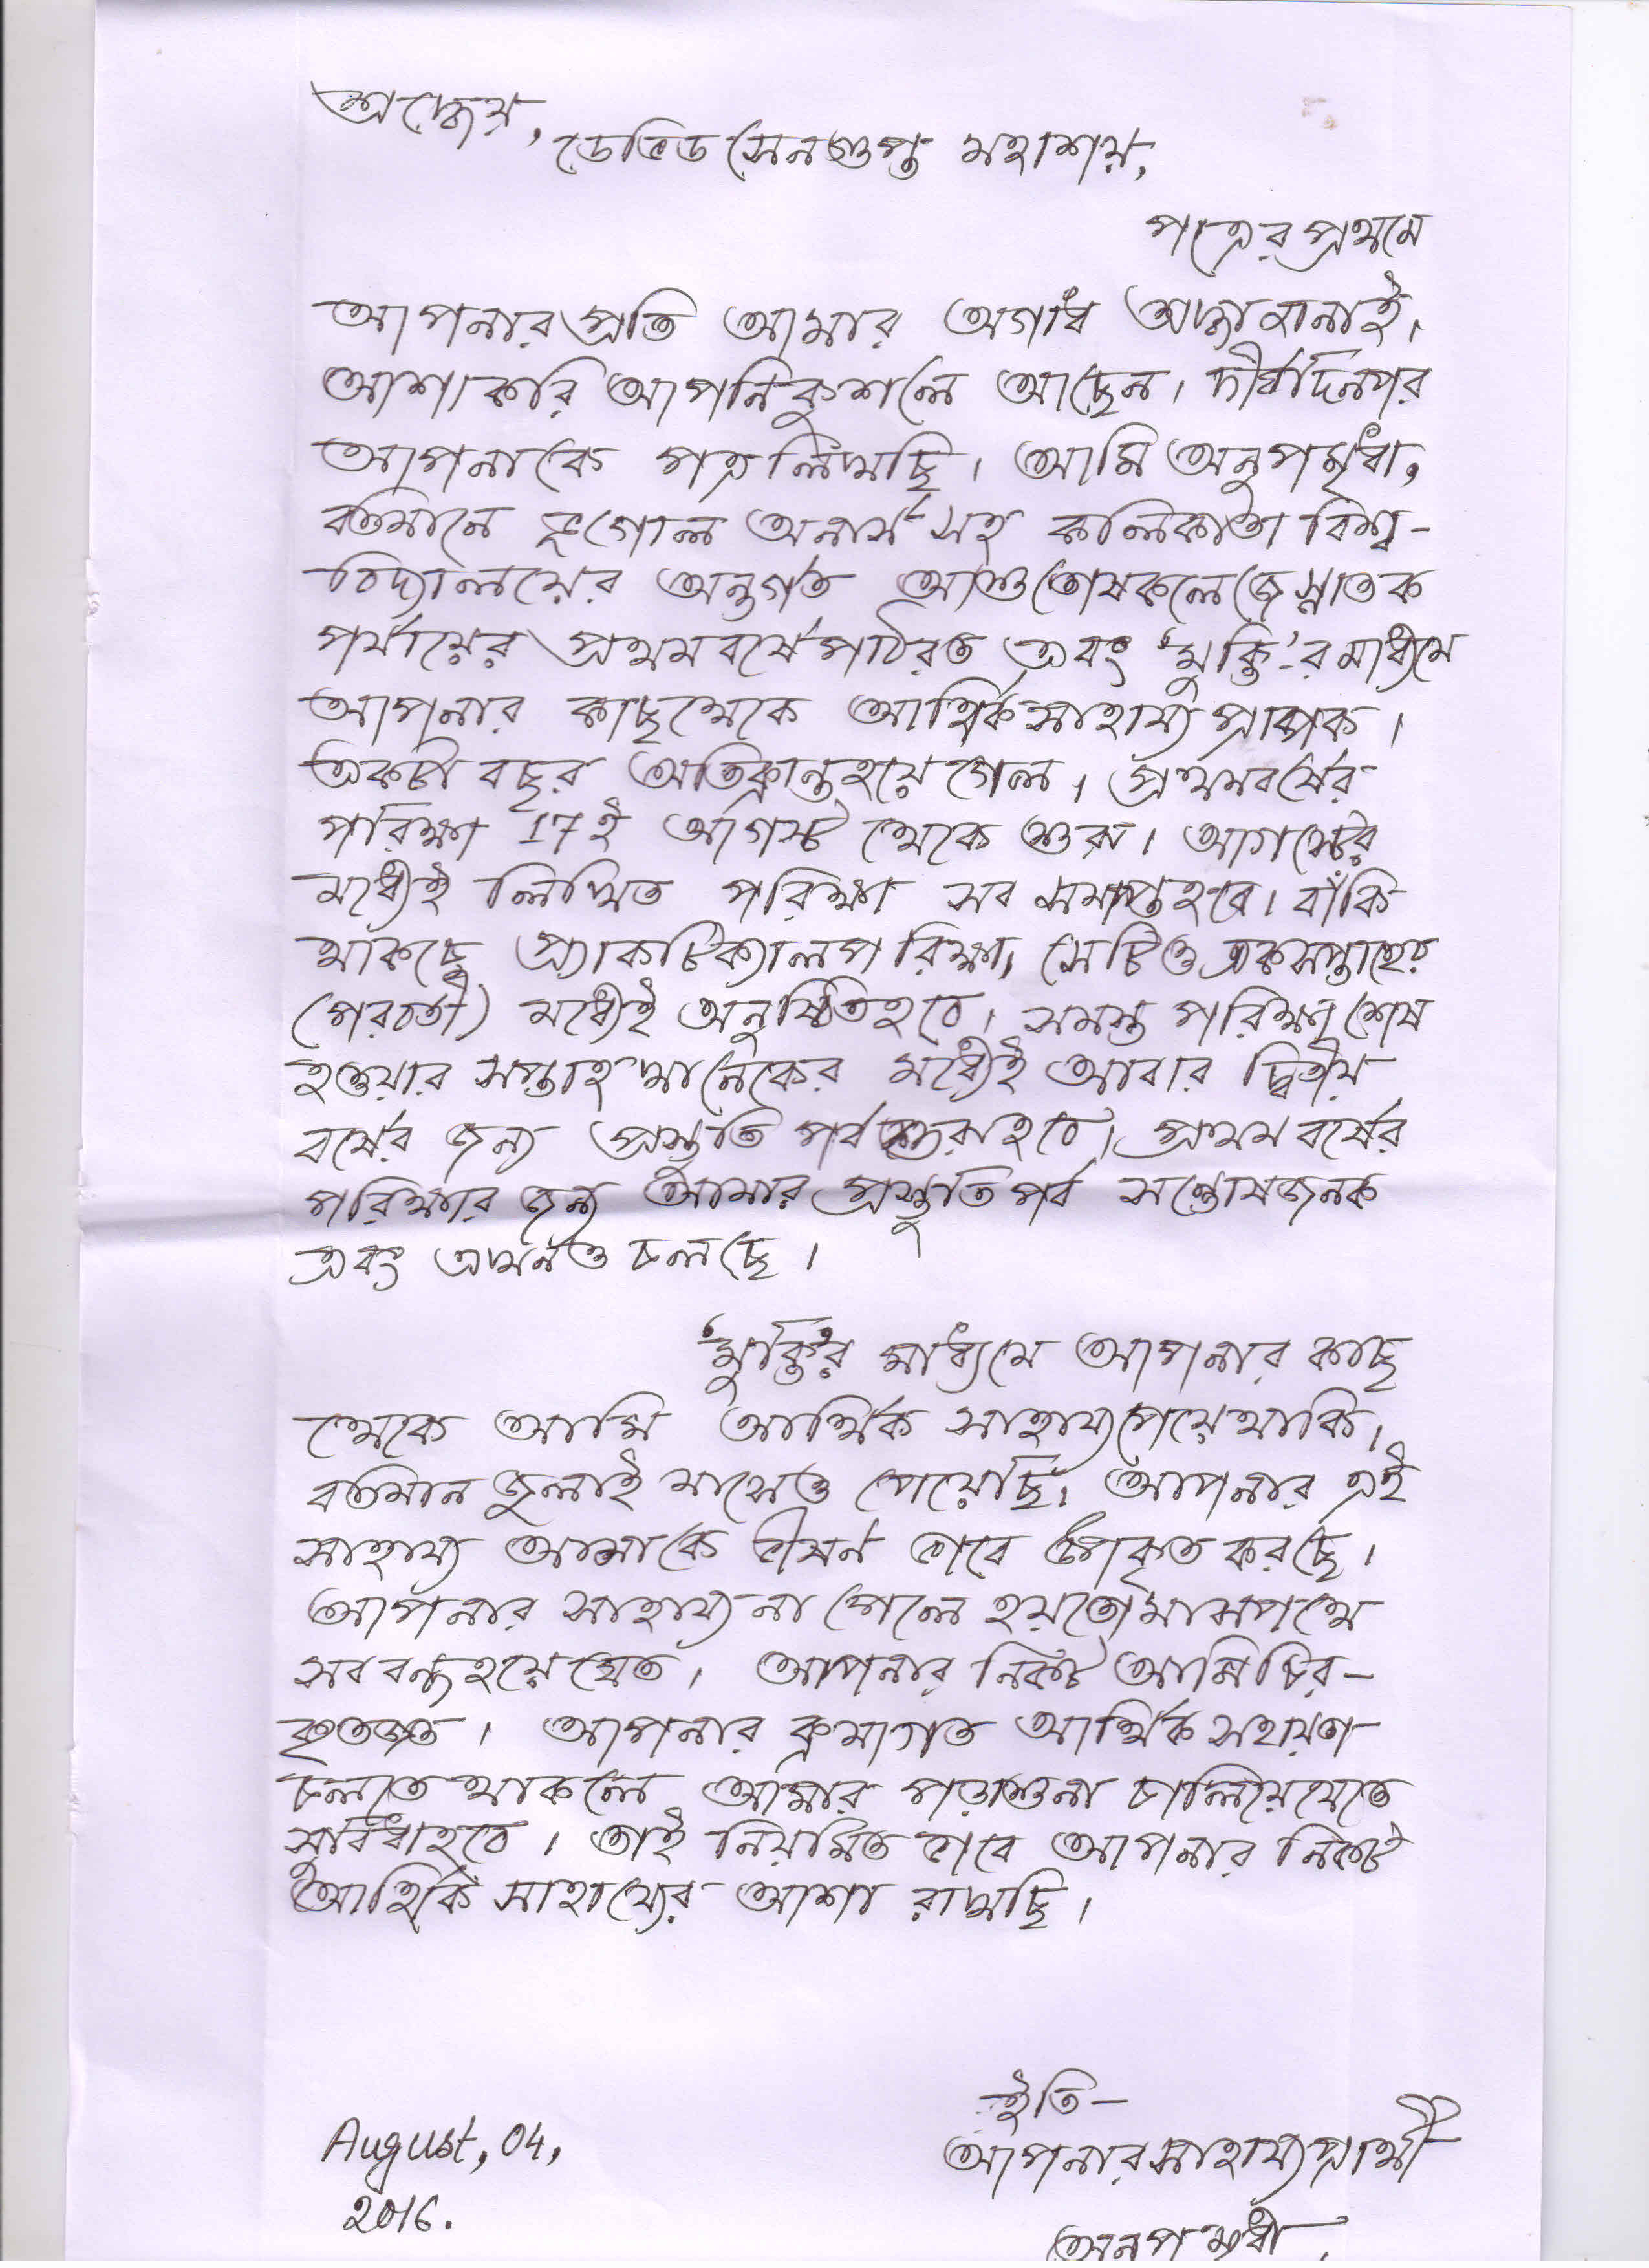 শ্রদ্ধেয়,
ডেভিড সেনগুপ্ত মহাশয়,
পত্রের প্রথমে
আপনার প্রতি আমার অগাধ শ্রদ্ধা জানাই।
আশা করি আপনি কুশলে আছেন। দীর্ঘদিন পর
আপনাকে পত্র লিখছি। আমি অনুপ মৃধা,
বর্তমানে ভূগোল অনার্স সহ কলিকাতা বিশ্ব-
বিদ্যালয়ের অন্তর্গত আশুতোষ কলেজে স্নাতক
পর্যায়ের প্রথম বর্ষে পাঠরত এবং 'মুক্তি'-র মাধ্যমে
আপনার কাছ থেকে আর্থিক সাহায্য প্রাপক।
একটা বছর অতিক্রান্ত হয়ে গেল। প্রথম বর্ষের
পরিক্ষা 17ই আগস্ট থেকে শুরু। আগস্টের
মধ্যেই লিখিত পরিক্ষা সব সমাপ্ত হবে। বাঁকি
থাকছে প্র্যাকটিক্যাল পরিক্ষা, সেটিও এক সপ্তাহের
(পরবর্তী) মধ্যেই অনুষ্ঠিত হবে। সমস্ত পরিক্ষা শেষ
হওয়ার সপ্তাহ খানেকের মধ্যেই আবার দ্বিতীয়
বর্ষের জন্য প্রস্তুতি পর্ব শুরু হবে। প্রথম বর্ষের
পরিক্ষার জন্য আমার প্রস্তুতি পর্ব সন্তোষজনক
এবং এখনও চলছে।
'মুক্তি'র মাধ্যমে আপনার কাছ
থেকে আমি আর্থিক সাহায্য পেয়ে থাকি,
বর্তমান জুলাই মাসেও পেয়েছি। আপনার এই
সাহায্য আমাকে ভীষন ভাবে উপকৃত করছে।
আপনার সাহায্য না পেলে হয়তো মাঝপথে
সব বন্ধ হয়ে যেত। আপনার নিকট আমি চির-
কৃতজ্ঞ। আপনার ক্রমাগত আর্থিক সহায়তা
চলতে থাকলে আমার পড়াশুনা চালিয়ে যেতে
সুবিধা হবে। তাই নিয়মিত ভাবে আপনার নিকট
আর্থিক সাহায্যের আশা রাখছি।
ইতি-
আপনার সাহায্য প্রার্থী
অনুপ মৃধা।
August, 04,
2016.